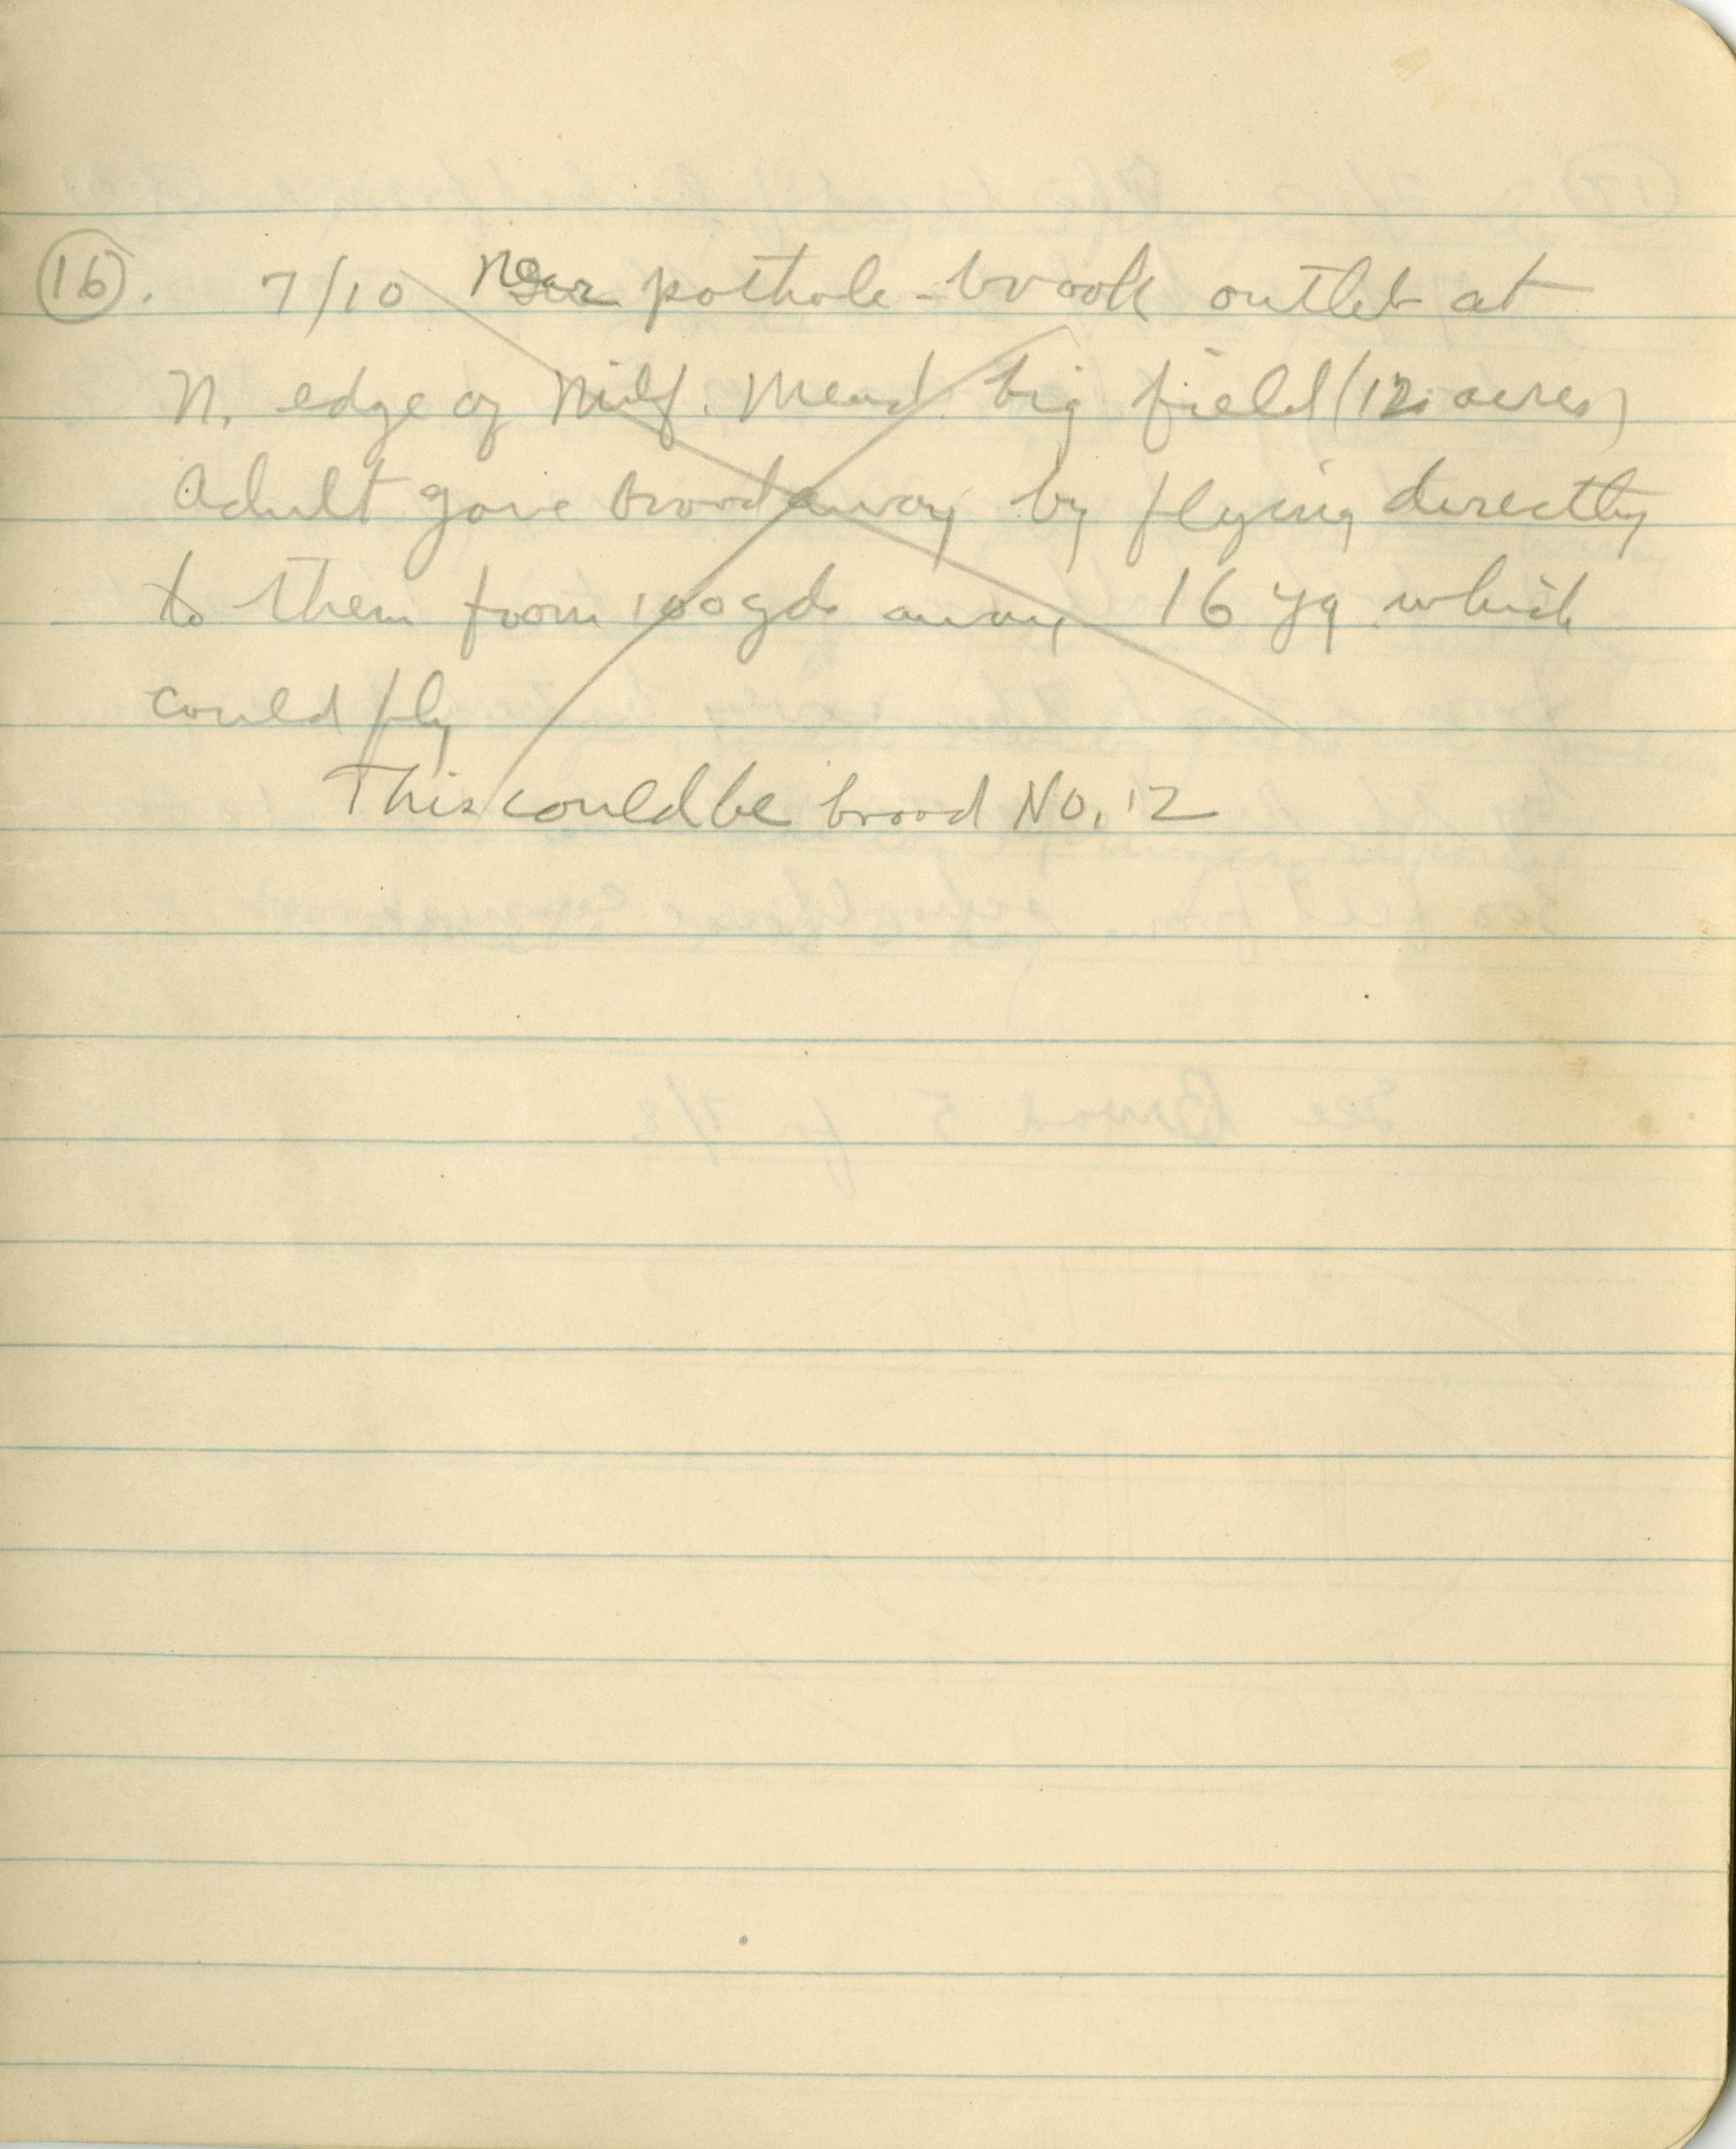 (16). 7/10 Near pothole-brook outlet at
N. edge of Milf. Mead. big field (12 acres)
Adult gave brood away by flying directly
to them from 100 yds away 16 yg which
could fly
This could be brood No. 12
See Brood 5 for 7/2